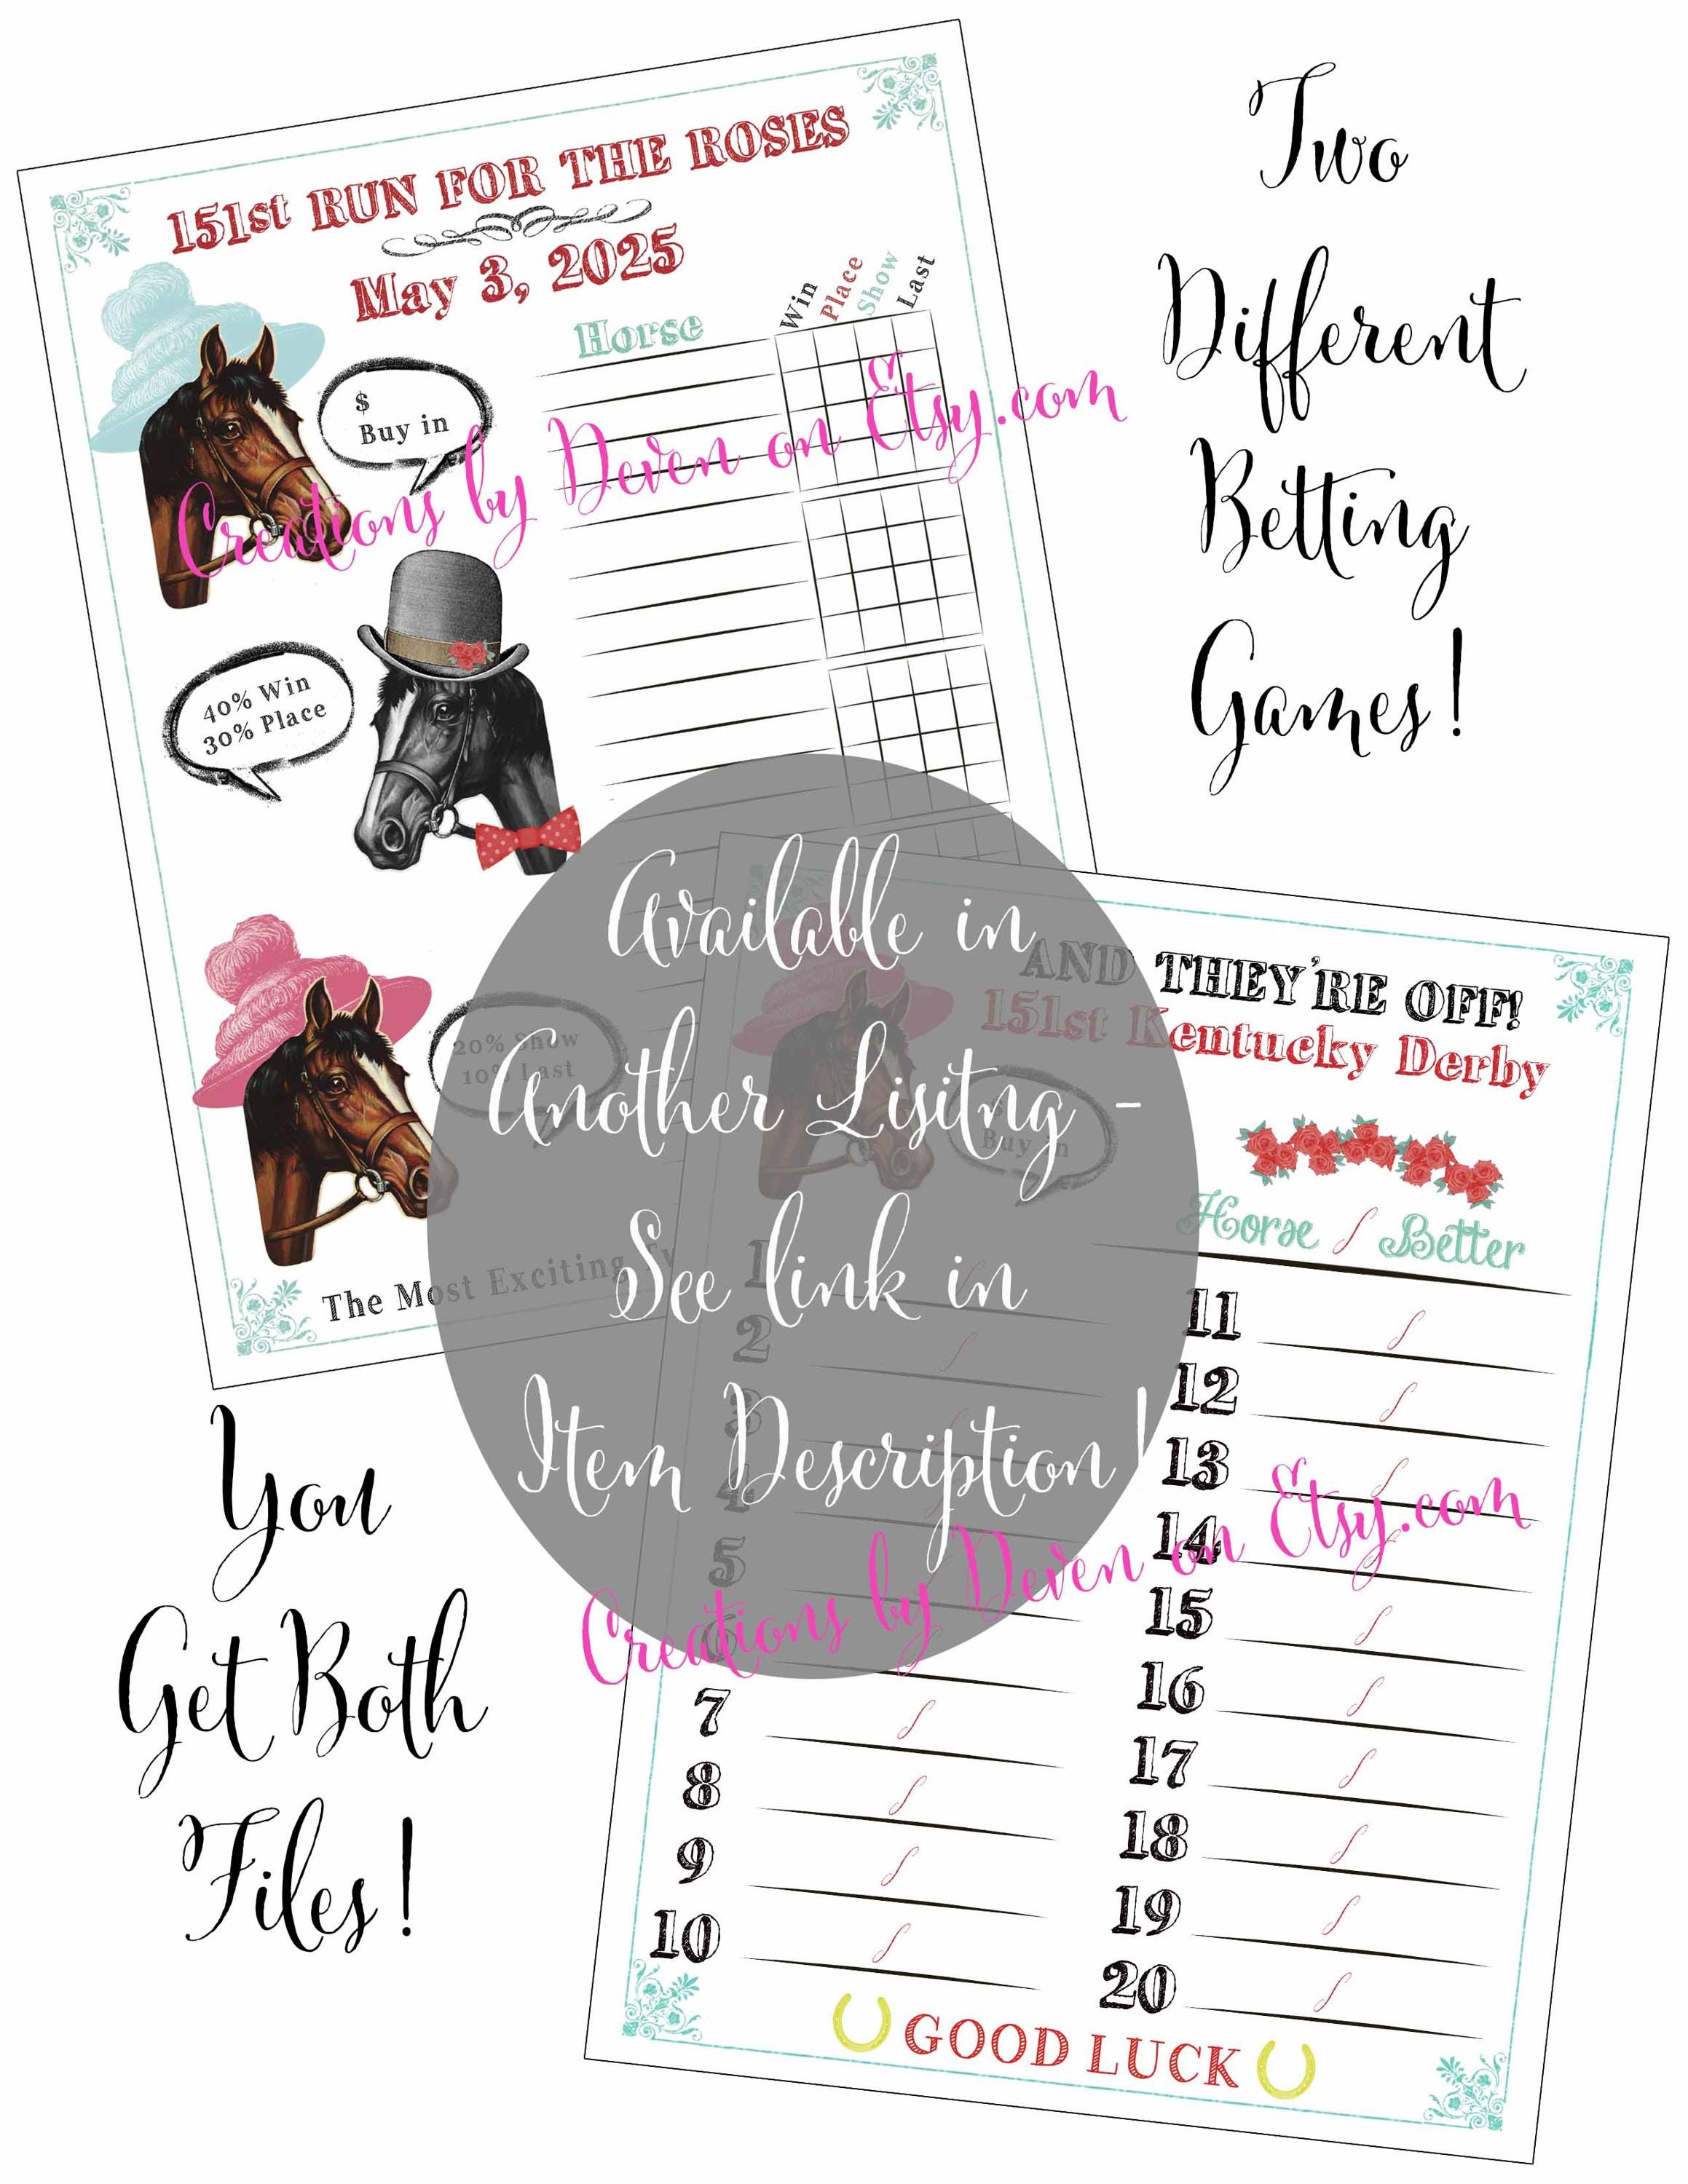 Two
Different
Betting
Games!
151st RUN FOR THE ROSES
May 3, 2025
Horse
Win
Place
Show
Last
$
Buy in
Creations by Deven on Etsy.com
40% Win
30% Place
20% Show
10% Last
The Most Exciting
Available in
Another Lisitng -
See link in
Item Description!
AND THEY'RE OFF!
151st Kentucky Derby
$
Buy in
Horse / Better
1 /
2 /
3 /
4 /
5 /
6
7 /
8 /
9 /
10 /
11 /
12 /
13 /
14
15 /
16 /
17 /
18 /
19 /
20 /
Creations by Deven on Etsy.com
GOOD LUCK
You
Get Both
Files!